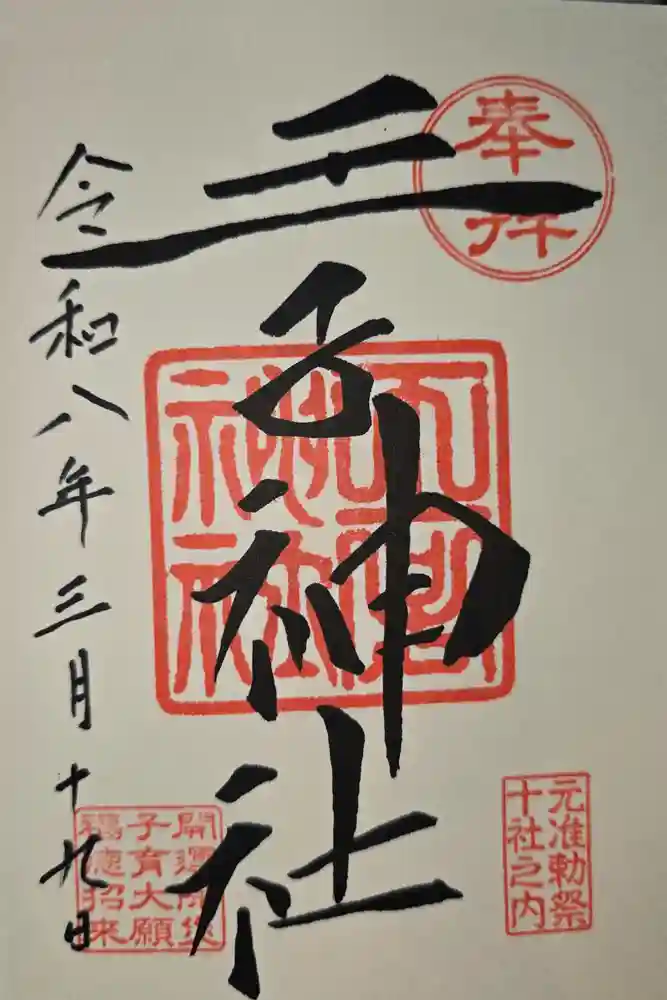 奉拝
王子神社
令和八年三月十九日
元准勅祭
十社之内
開運除災
子育大願
福徳招来